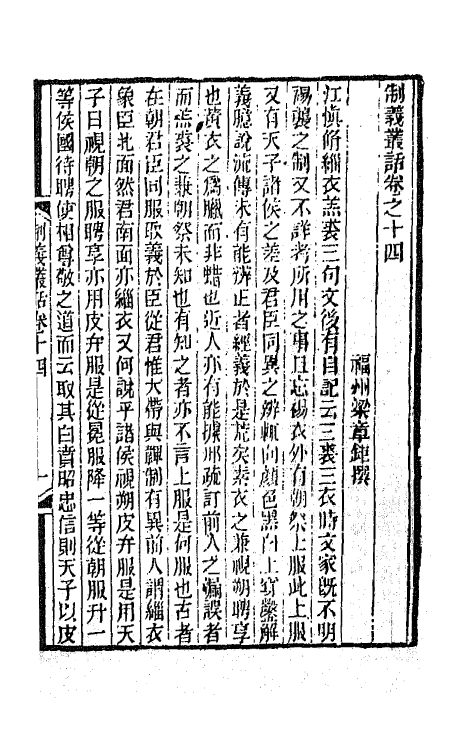 制義叢話卷之十四
福州梁章鉅撰
江慎脩緇衣羔裘三句文後有自記云三裘三衣時文家旣不明
裼襲之制又不詳考所用之事且忘裼衣外有朝祭上服此上服
又有天子諸侯之差及君臣同異之辨輒向顏色黑白上穿鑿解
義臆說流傳未有能辨正者經義於是荒矣素衣之兼視朔聘享
也黃衣之爲臘而非蜡也近人亦有能據邢疏訂前人之漏誤者
而羔裘之兼朝祭未知也有知之者亦不言上服是何服也古者
在朝君臣同服取義於臣從君惟大帶與韠制有異前人謂緇衣
象臣北面然君南面亦緇衣又何說乎諸侯視朔皮弁服是用天
子日視朝之服聘享亦用皮弁服是從冕服降一等從朝服升一
等侯國待聘使相尊敬之道而云取其白賁昭忠信則天子以皮
制義叢話卷十四
一